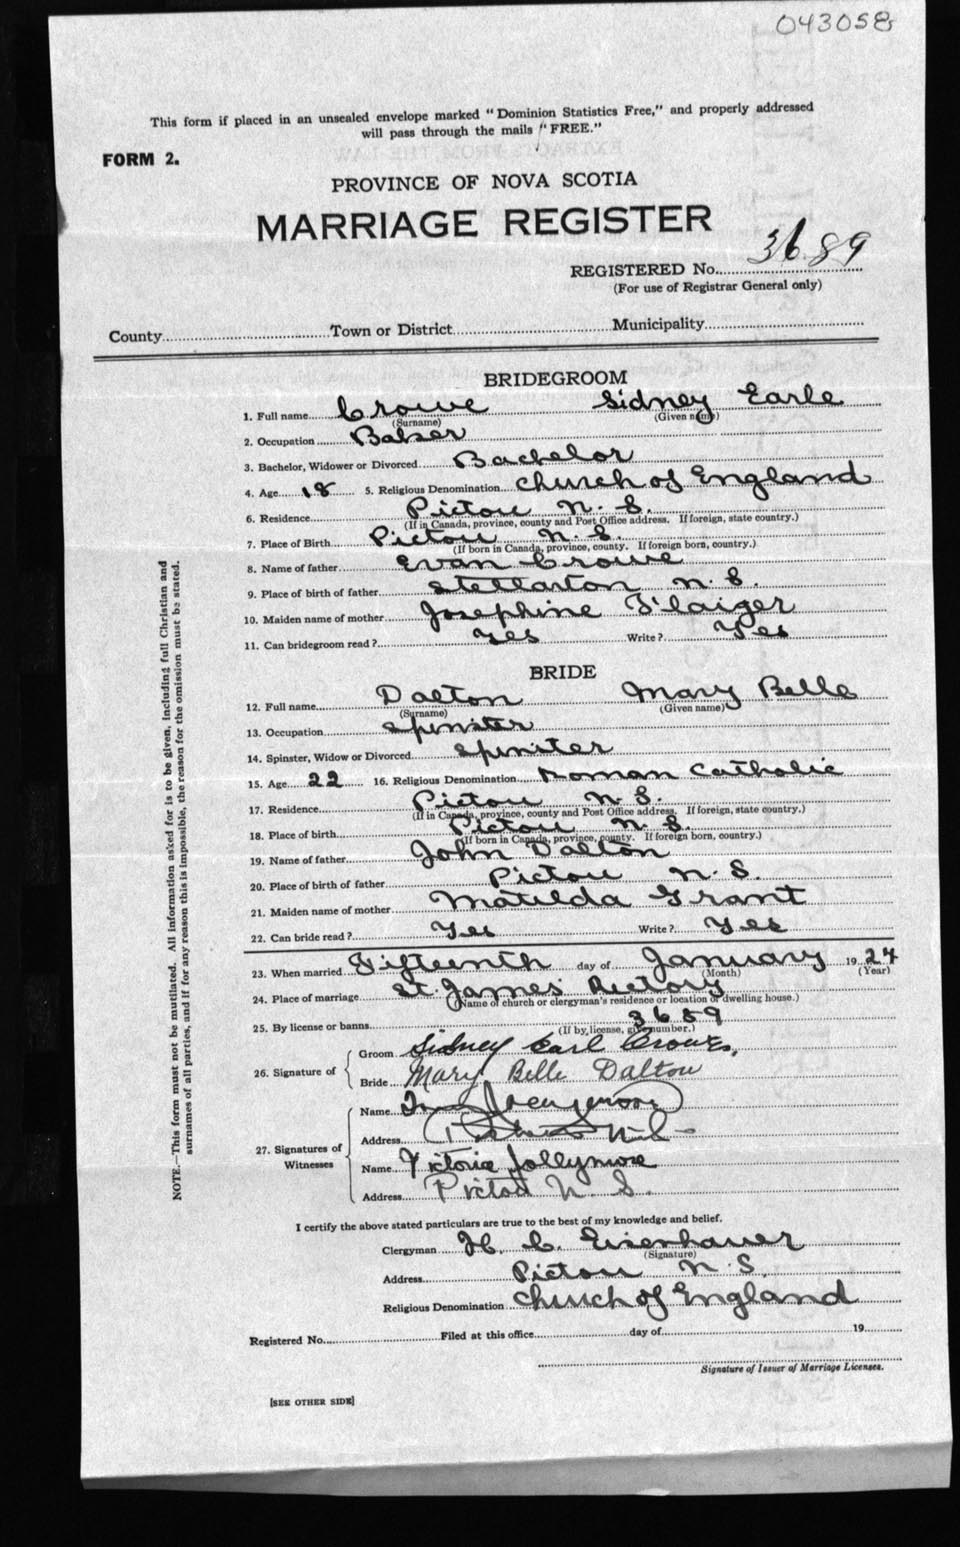 043058
This form if placed in an unsealed envelope marked "Dominion Statistics Free," and properly addressed
will pass through the mails "FREE."
FORM 2.
PROVINCE OF NOVA SCOTIA
MARRIAGE REGISTER
REGISTERED No. 3689
(For use of Registrar General only)
County Town or District Municipality
BRIDEGROOM
1. Full name Crowe Sidney Earle
(Surname) (Given name)
2. Occupation Baker
3. Bachelor, Widower or Divorced Bachelor
4. Age 18 5. Religious Denomination Church of England
6. Residence Pictou N. S.
(If in Canada, province, county and Post Office address. If foreign, state country.)
7. Place of Birth Pictou N. S.
(If born in Canada, province, county. If foreign born, country.)
8. Name of father Evan Crowe
9. Place of birth of father Stellarton N. S.
10. Maiden name of mother Josephine
11. Can bridegroom read? Yes Write? Yes
BRIDE
12. Full name Dalton Mary Belle
(Surname) (Given name)
13. Occupation Spinster
14. Spinster, Widow or Divorced Spinster
15. Age 22 16. Religious Denomination Roman Catholic
17. Residence Pictou N. S.
(If in Canada, province, county and Post Office address. If foreign, state country.)
18. Place of birth Pictou N. S.
(If born in Canada, province, county. If foreign born, country.)
19. Name of father John Dalton
20. Place of birth of father Pictou N. S.
21. Maiden name of mother Matilda Grant
22. Can bride read? Yes Write? Yes
23. When married Fifteenth day of January 1924
(Month) (Year)
24. Place of marriage St. James Rectory
(Name of church or clergyman's residence or location of dwelling house.)
25. By license or banns 3689
(If by license, give number.)
26. Signature of
Groom Sidney Earl Crowe
Bride Mary Belle Dalton
27. Signatures of Witnesses
Name
Address N. S.
Name Victoria Jollymore
Address Pictou N. S.
I certify the above stated particulars are true to the best of my knowledge and belief.
Clergyman H. C. Eisenhauer
(Signature)
Address Pictou N. S.
Religious Denomination Church of England
Registered No. Filed at this office day of 19
Signature of Issuer of Marriage Licenses.
[SEE OTHER SIDE]
NOTE.—This form must not be mutilated. All information asked for is to be given, including full Christian and
surnames of all parties, and if for any reason this is impossible, the reason for the omission must be stated.